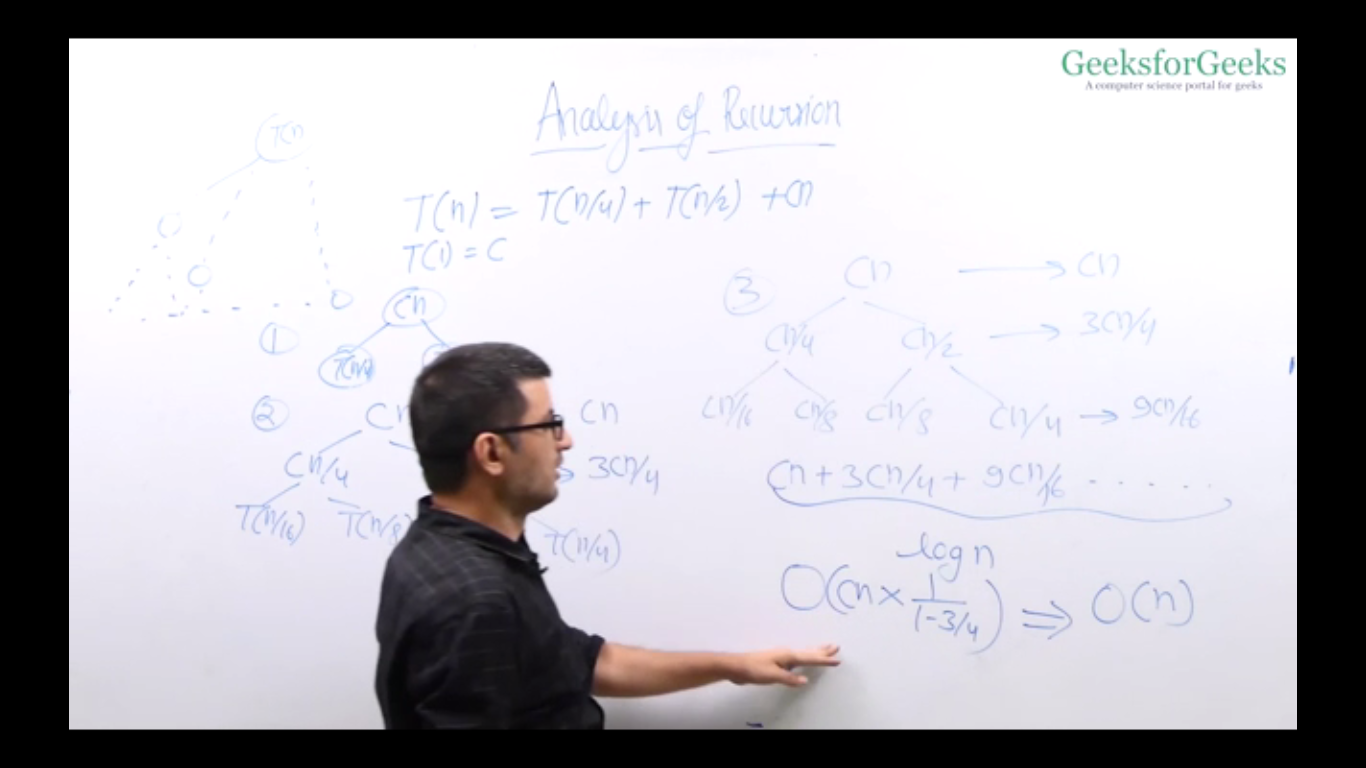 GeeksforGeeks
A computer science portal for geeks
Analysis of Recursion
T(n)
T(n) = T(n/4) + T(n/2) + Cn
T(1) = C
① Cn
T(n/4)
② Cn
Cn
Cn/4
3Cn/4
T(n/16) T(n/8)
T(n/4)
③ Cn → Cn
Cn/4 Cn/2 → 3Cn/4
Cn/16 Cn/8 Cn/8 Cn/4 → 9Cn/16
Cn + 3Cn/4 + 9Cn/16 . . . . . .
log n
O(Cn × 1/(1-3/4)) ⇒ O(n)